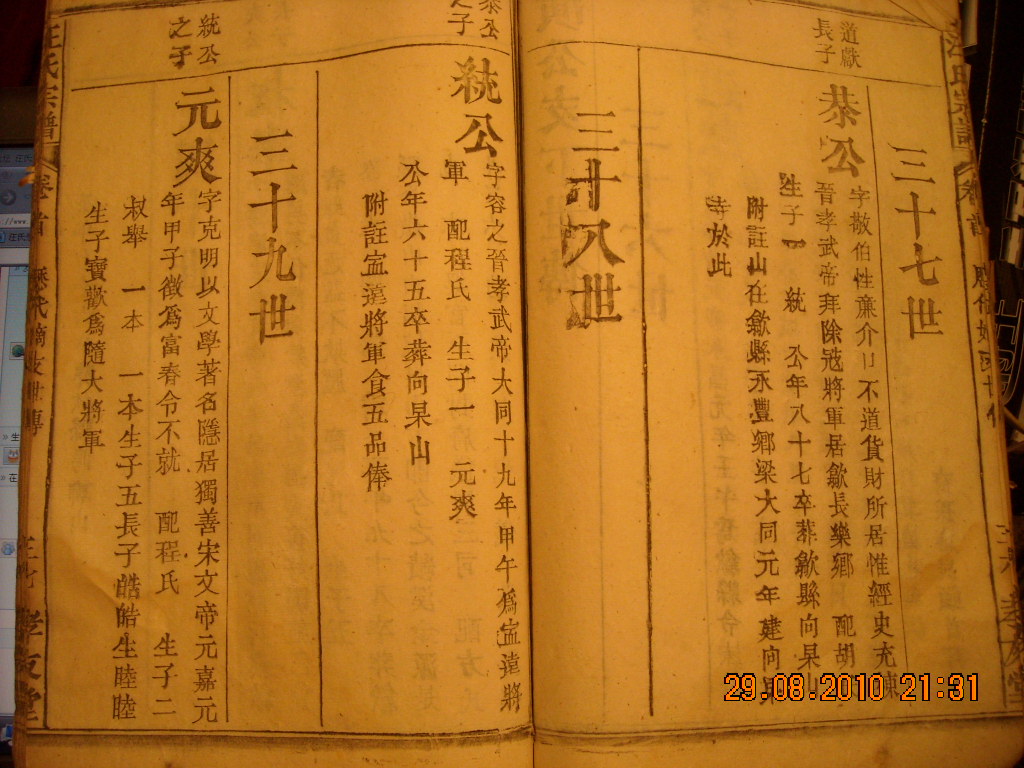 三十七世
道獻
長子
恭公
字敬伯性廉介口不道貨財所居惟經史充棟
晉孝武帝拜除冦將軍居歙長樂鄉 配胡
生子一 統 公年八十七卒葬歙縣向杲山
附註山在歙縣永豐鄉梁大同元年建向杲
寺於此
三十八世
恭公
之子
統公
字容之晉孝武帝大同十九年甲午爲寍遠將
軍 配程氏 生子一 元爽
公年六十五卒葬向杲山
附註寍遠將軍食五品俸
三十九世
統公
之子
元爽
字克明以文學著名隱居獨善宋文帝元嘉元
年甲子徵爲富春令不就 配程氏 生子二
叔舉 一本 一本生子五長子皓皓生睦睦
生子寶歡爲隨大將軍
汪氏宗譜
卷首
孝友堂
29.08.2010 21:31